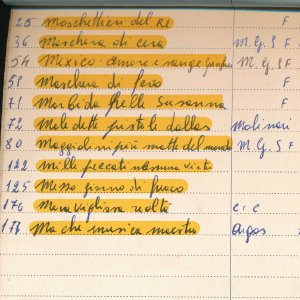 26 Moschettieri del Re F
36 Maschera di cera M.G.S F
54 Mexico - amore e sangue M.G. S F
58 Maschera di fero F
71 Morbida pelle Susanna F
72 Maledette pistole dallas Molinari
80 Maggiolino più matto del mondo M.G.S F
122 Mille peccati nessuna virtù
125 Mezzo giorno di fuoco
176 Meravigliosa realtà C.I.C
178 Ma che musica maestro Argos